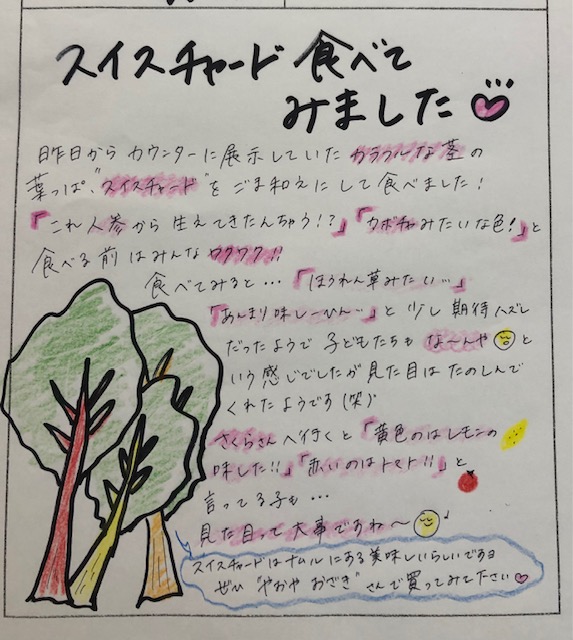 スイスチャード食べて
みました♡
昨日からカウンターに展示していたカラフルな茎の
葉っぱ、"スイスチャード"をごま和えにして食べました!
「これ人参から生えてきたんちゃう!?」「カボチャみたいな色!」と
食べる前はみんなワクワク!!
食べてみると…「ほうれん草みたい…」
「あんまり味しーひん…」と少し期待ハズレ
だったようで子どもたちもな〜んやと
いう感じでしたが見た目はたのしんで
くれたようです(笑)
さくらさんへ行くと「黄色のはレモンの
味した!!」「赤いのはトマト!!」と
言ってる子も…
見た目って大事ですね〜
スイスチャードはナムルにある美味しいらしいですヨ
ぜひ"やおや おざき"さんで買ってみて下さい♡